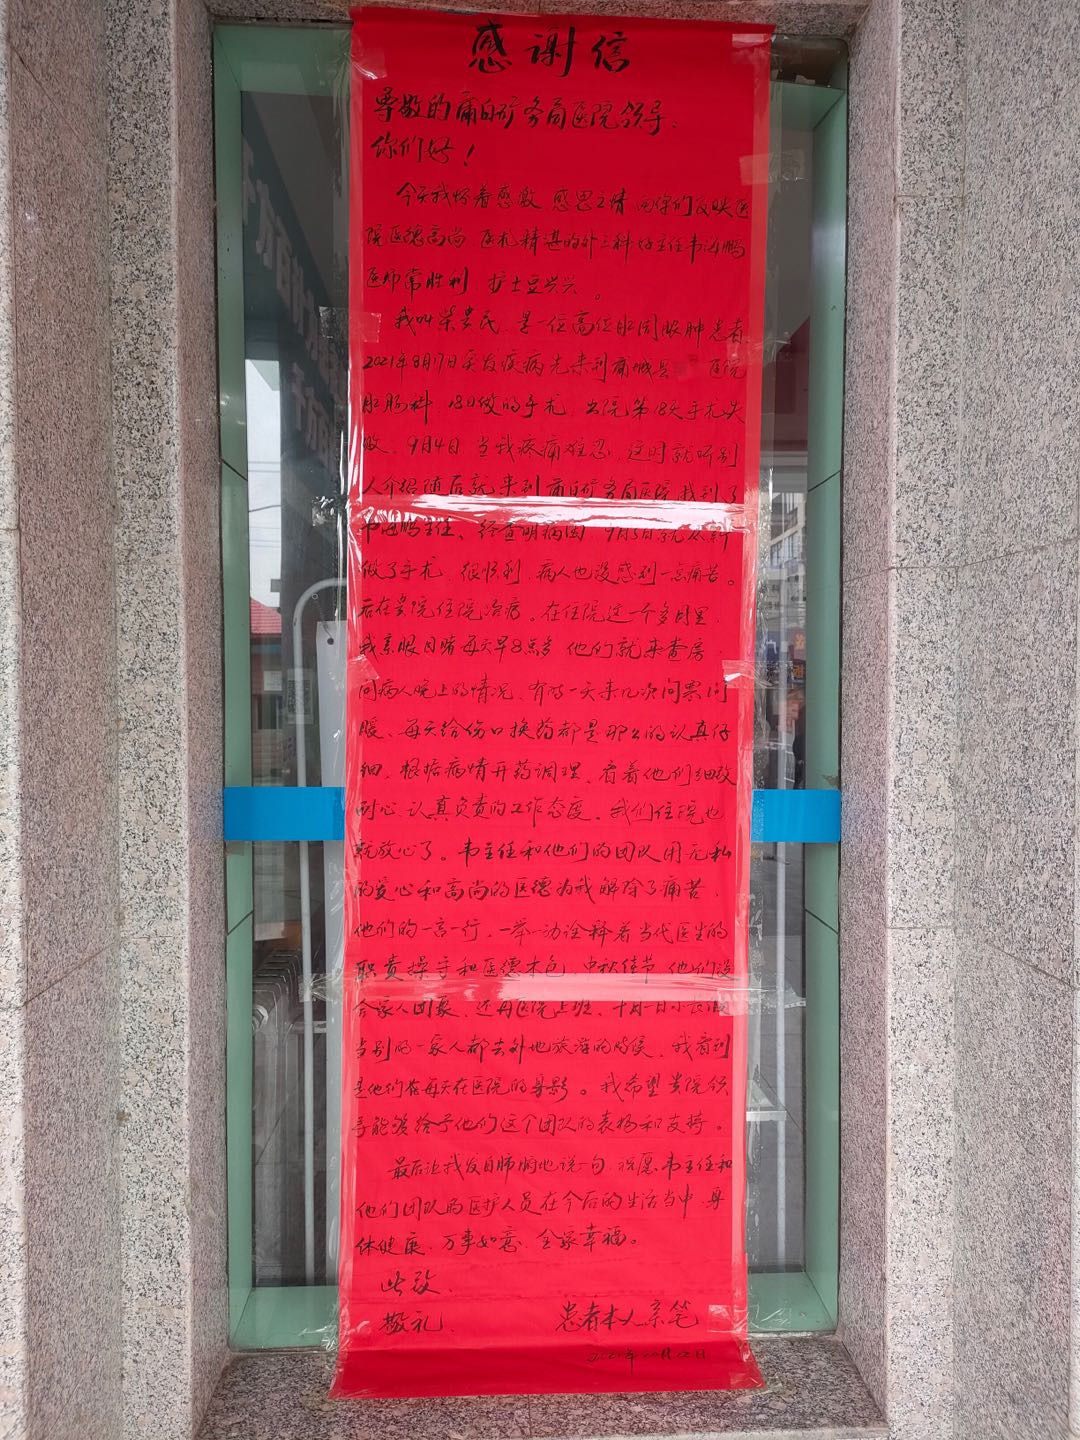 感谢信
尊敬的蒲白矿务局医院领导：
你们好！
今天我怀着感激 感恩之情 向你们反映医
院医德高尚 医术精湛的外三科好主任韦海鹏
医师常胜利，护士豆兴兴。
我叫柴贵民，是一位高位肛周脓肿患者
2021年8月17日突发疾病先来到蒲城县 医院
肛肠科，18日做的手术，出院第18天手术失
败，9月4日，当我疼痛难忍，这时就听别
人介绍随后就来到蒲白矿务局医院找到了
韦海鹏主任、经查明病因 9月5日就从新
做了手术，很顺利，病人也没感到一点痛苦。
后在贵院住院治疗。在住院这一个多月里，
我亲眼目睹每天早8点多 他们就来查房，
问病人晚上的情况、有时一天来几次问寒问
暖、每天给伤口换药都是那么的认真仔
细，根据病情开药调理，看着他们细致
耐心、认真负责的工作态度，我们住院也
就放心了。韦主任和他们的团队用无私
的爱心和高尚的医德为我解除了痛苦，
他们的一言一行，一举一动诠释着当代医生的
职责操守和医德本色，中秋佳节 他们没
合家人团聚，还再医院上班，十月一日小长假
当别的一家人都去外地旅游的时候，我看到
是他们在每天在医院的身影。我希望贵院领
导能够给予他们这个团队的表扬和支持。
最后让我发自肺腑地说一句，祝愿韦主任和
他们团队的医护人员在今后的生活当中，身
体健康、万事如意、全家幸福。
此致，
敬礼，
患者本人亲笔
2021年10月12日